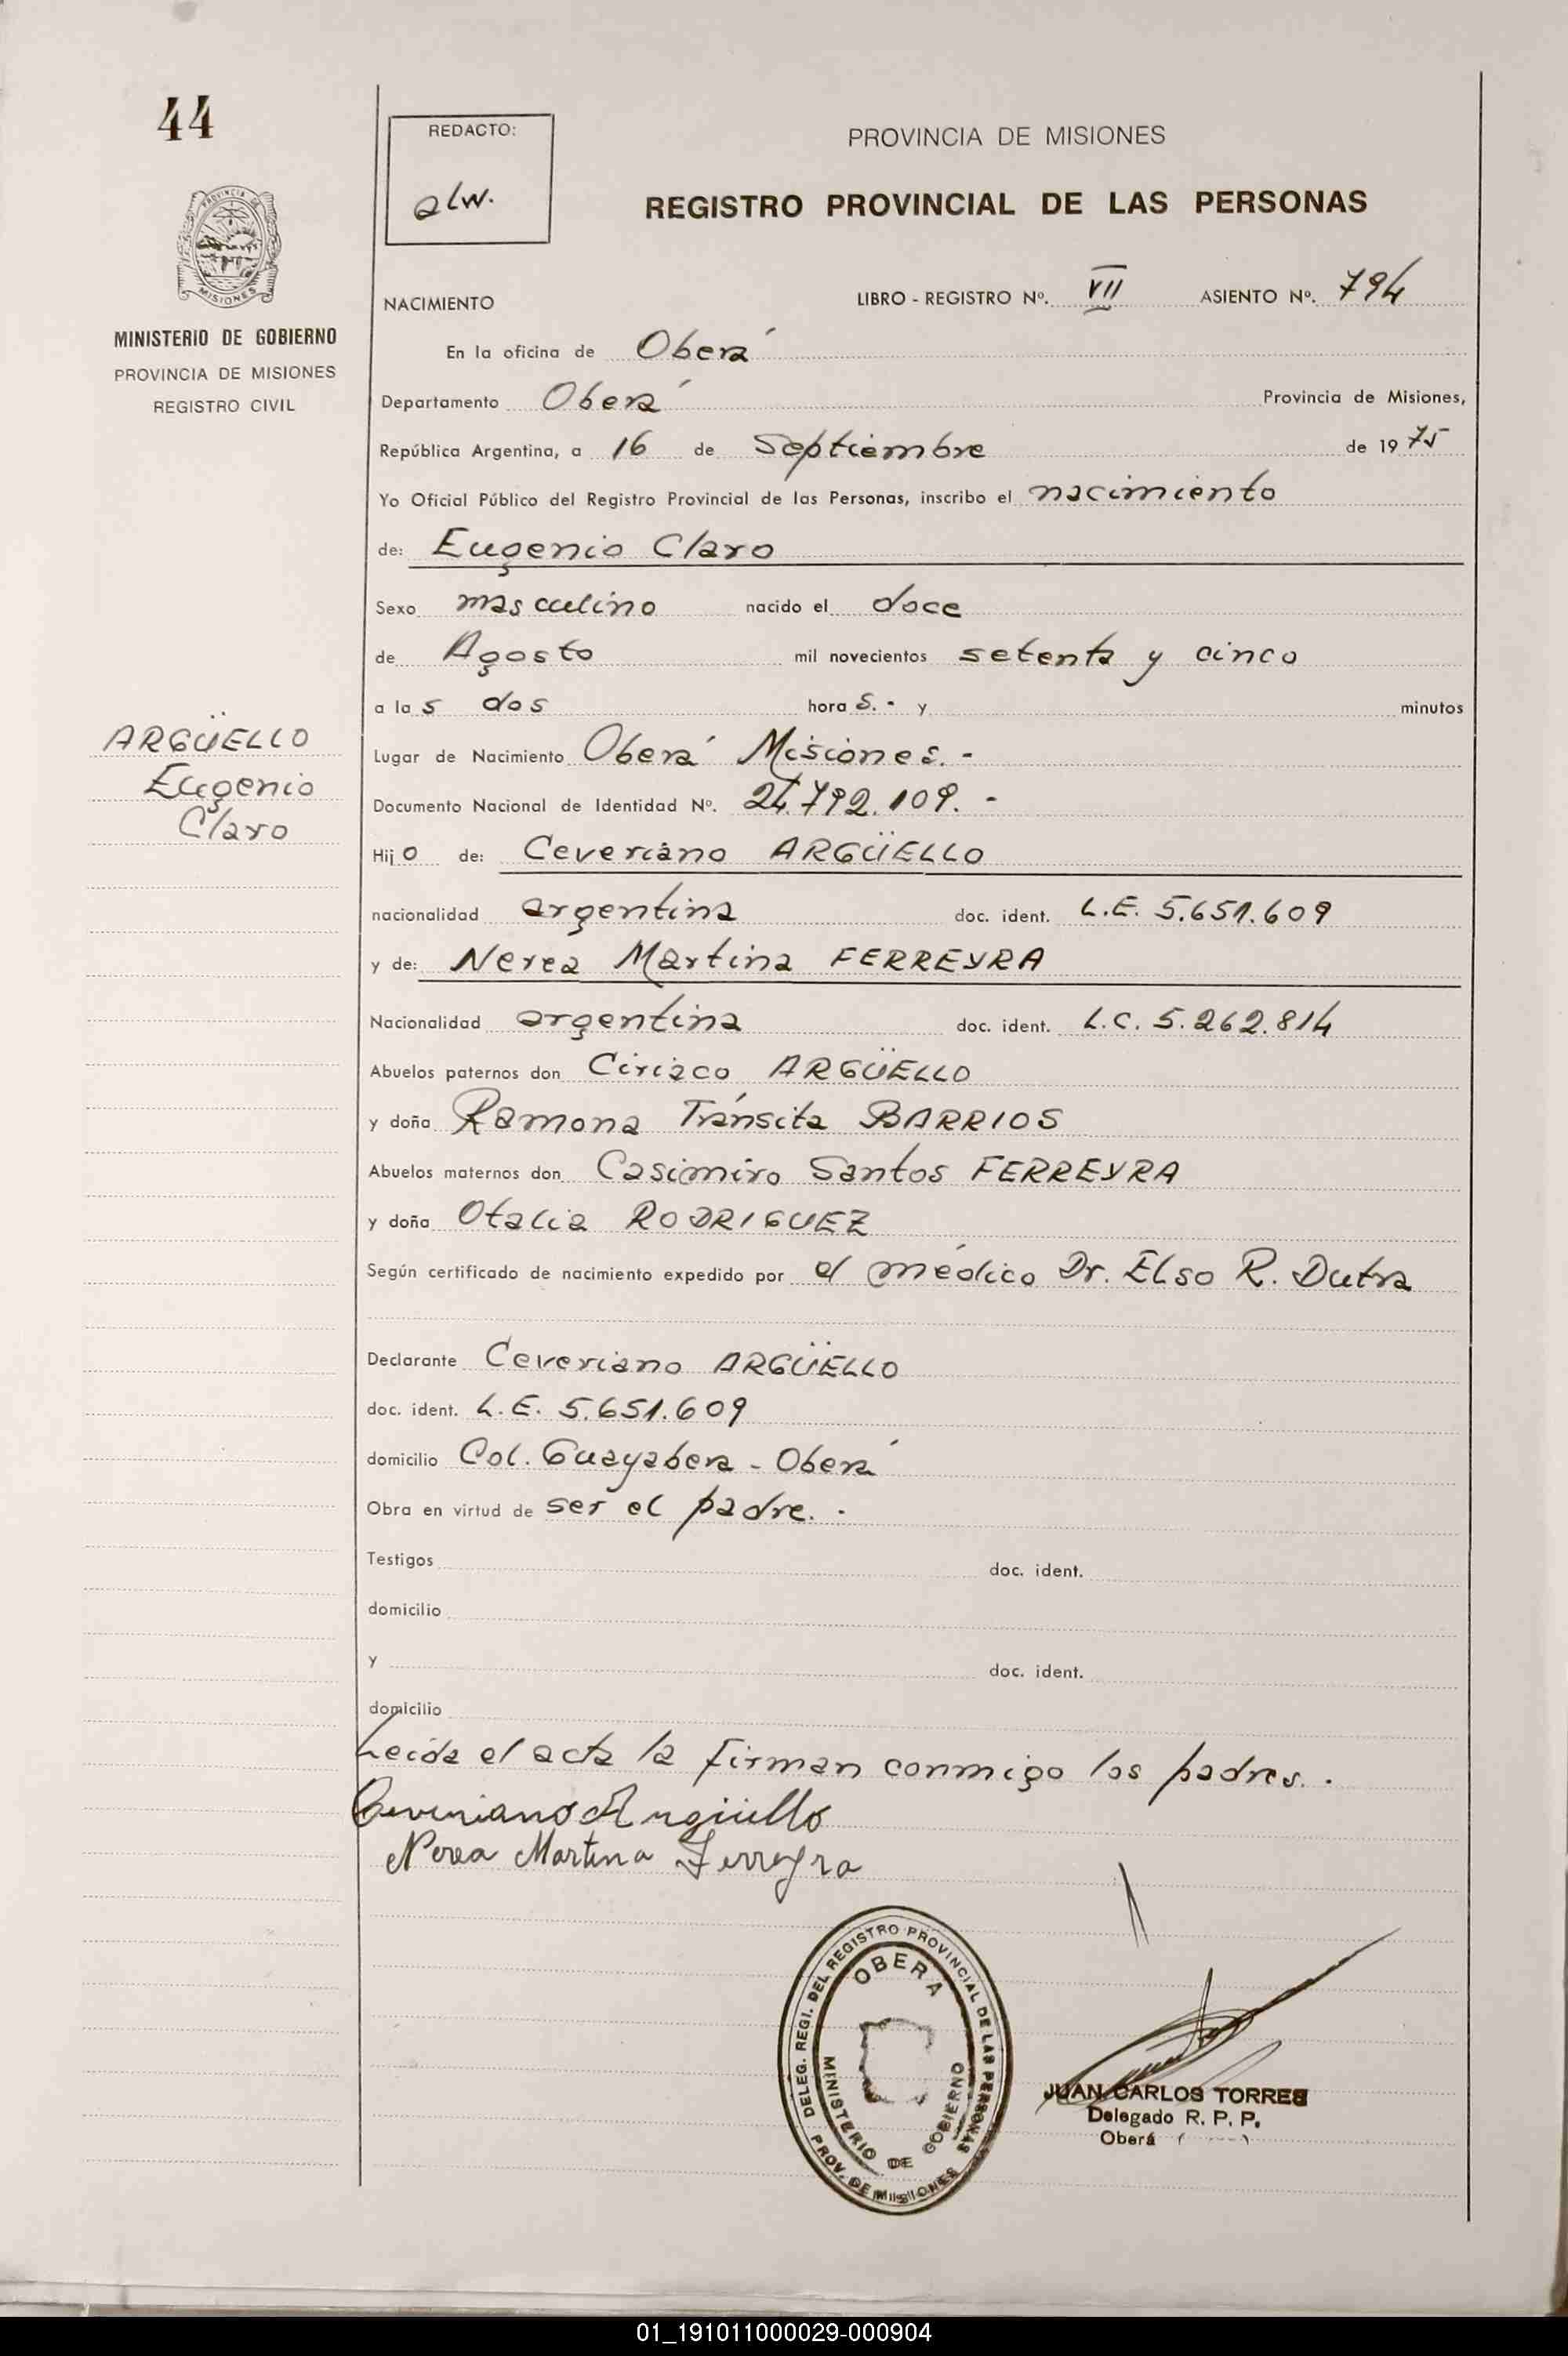 44
REDACTO:
alw.
PROVINCIA DE MISIONES
REGISTRO PROVINCIAL DE LAS PERSONAS
PROVINCIA DE
MISIONES
MINISTERIO DE GOBIERNO
PROVINCIA DE MISIONES
REGISTRO CIVIL
NACIMIENTO LIBRO - REGISTRO Nº. VII ASIENTO Nº. 794
En la oficina de Oberá
Departamento Oberá Provincia de Misiones,
República Argentina, a 16 de Septiembre de 1975
Yo Oficial Público del Registro Provincial de las Personas, inscribo el nacimiento
de: Eugenio Claro
Sexo masculino nacido el doce
de Agosto mil novecientos setenta y cinco
a las dos horas.- y minutos
ARGÜELLO
Eugenio
Claro
Lugar de Nacimiento Oberá Misiones.-
Documento Nacional de Identidad Nº. 24.792.109.-
Hijo de: Ceveriano ARGÜELLO
nacionalidad argentina doc. ident. L.E. 5.651.609
y de: Nerea Martina FERREYRA
Nacionalidad argentina doc. ident. L.C. 5.262.814
Abuelos paternos don Ciriaco ARGÜELLO
y doña Ramona Tránsita BARRIOS
Abuelos maternos don Casimiro Santos FERREYRA
y doña Otalia RODRIGUEZ
Según certificado de nacimiento expedido por el médico Dr. Elso R. Dutra
Declarante Ceveriano ARGÜELLO
doc. ident. L.E. 5.651.609
domicilio Col. Guayabera - Oberá
Obra en virtud de ser el padre.-
Testigos doc. ident.
domicilio
y doc. ident.
domicilio
Leída el acta la firman conmigo los padres.-
Ceveriano Argüello
Nerea Martina Ferreyra
DELEG. REGI. DEL REGISTRO PROVINCIAL DE LAS PERSONAS
OBERA
MINISTERIO DE GOBIERNO
PROV. DE MISIONES
JUAN CARLOS TORRES
Delegado R. P. P.
Oberá
01_191011000029-000904